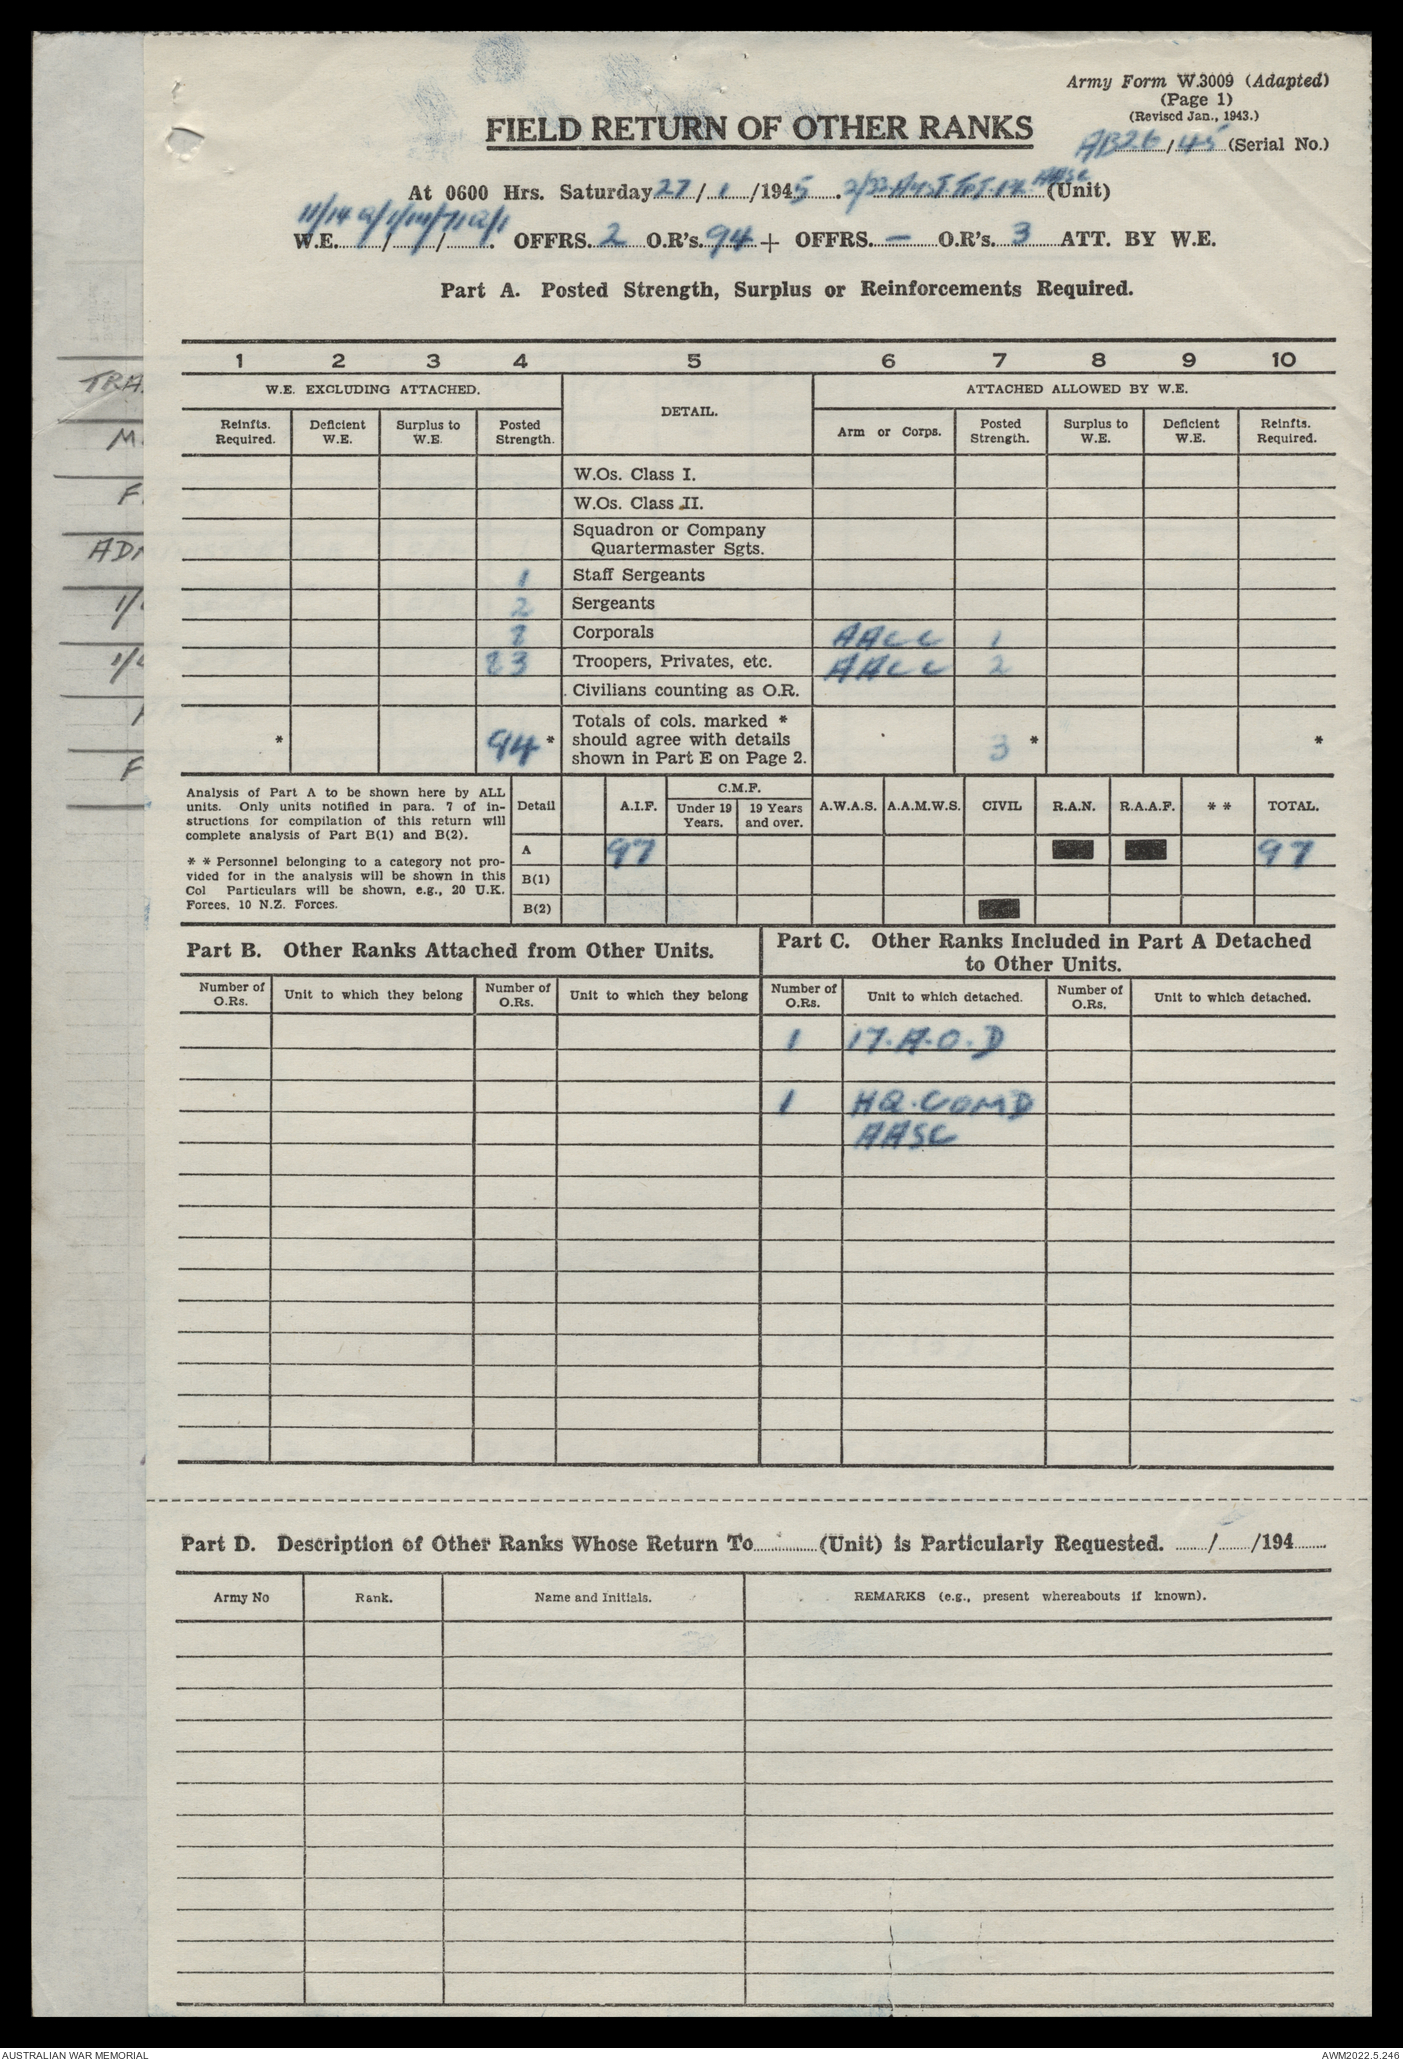 Army Form W.3009 (Adapted)
(Page 1)
(Revised Jan., 1943.)
FIELD RETURN OF OTHER RANKS
AB26/45 (Serial No.)
At 0600 Hrs. Saturday 27/1/1945. AASC (Unit)
W.E. OFFRS. 2 O.R's. 94 + OFFRS. — O.R's. 3 ATT. BY W.E.
Part A. Posted Strength, Surplus or Reinforcements Required.
1 2 3 4 5 6 7 8 9 10
W.E. EXCLUDING ATTACHED. DETAIL. ATTACHED ALLOWED BY W.E.
Reinfts. Required. Deficient W.E. Surplus to W.E. Posted Strength. Arm or Corps. Posted Strength. Surplus to W.E. Deficient W.E. Reinfts. Required.
W.Os. Class I.
W.Os. Class II.
Squadron or Company
Quartermaster Sgts.
1 Staff Sergeants
2 Sergeants
Corporals AACC 1
83 Troopers, Privates, etc. AACC 2
Civilians counting as O.R.
Totals of cols. marked *
* 94 * should agree with details 3 * *
shown in Part E on Page 2.
Analysis of Part A to be shown here by ALL
units. Only units notified in para. 7 of in-
structions for compilation of this return will
complete analysis of Part B(1) and B(2).
* * Personnel belonging to a category not pro-
vided for in the analysis will be shown in this
Col Particulars will be shown, e.g., 20 U.K.
Forces, 10 N.Z. Forces.
Detail A.I.F. C.M.F. Under 19 Years. 19 Years and over. A.W.A.S. A.A.M.W.S. CIVIL R.A.N. R.A.A.F. * * TOTAL.
A 97 97
B(1)
B(2)
Part B. Other Ranks Attached from Other Units.
Part C. Other Ranks Included in Part A Detached
to Other Units.
Number of O.Rs. Unit to which they belong Number of O.Rs. Unit to which they belong Number of O.Rs. Unit to which detached. Number of O.Rs. Unit to which detached.
1 17.A.O.D
1 HQ.COMD
AASC
Part D. Description of Other Ranks Whose Return To (Unit) is Particularly Requested. / /194
Army No Rank. Name and Initials. REMARKS (e.g., present whereabouts if known).
TRA
M
F
ADM
1/
1/
F
AUSTRALIAN WAR MEMORIAL
AWM2022.5.246